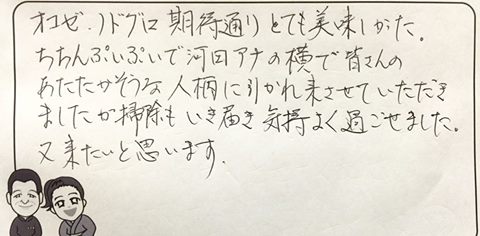 オコゼ、ノドグロ 期待通りとても美味しかた。
ちちんぷいぷいで河田アナの横で皆さんの
あたたかそうな人柄に引かれ来させていただき
ましたが掃除もいき届き気持よく過ごせました。
又来たいと思います.